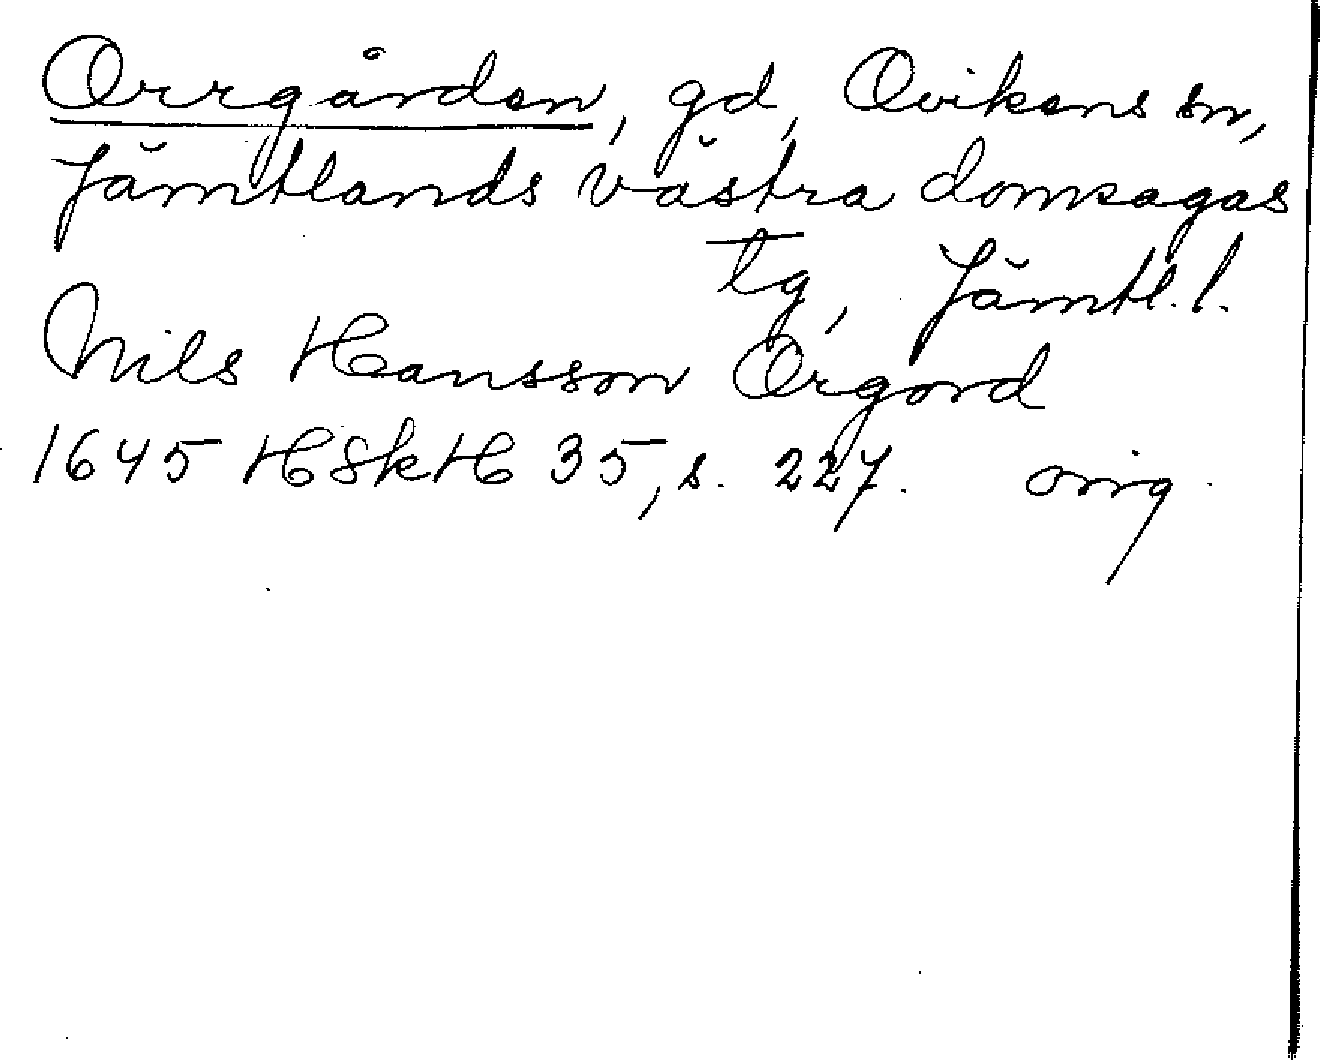 Orrgården, gd, Ovikens sn,
Jämtlands västra domsagas
tg, Jämtl. l.
Nils Hansson Orgord
1645 HSkH 35, s. 227. orig.